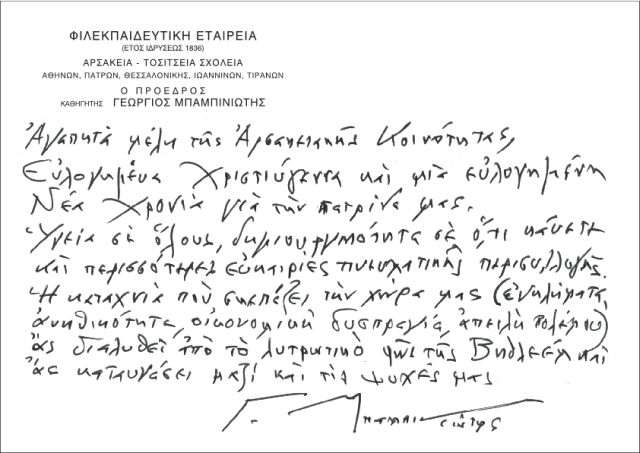 ΦΙΛΕΚΠΑΙΔΕΥΤΙΚΗ ΕΤΑΙΡΕΙΑ
(ΕΤΟΣ ΙΔΡΥΣΕΩΣ 1836)
ΑΡΣΑΚΕΙΑ - ΤΟΣΙΤΣΕΙΑ ΣΧΟΛΕΙΑ
ΑΘΗΝΩΝ, ΠΑΤΡΩΝ, ΘΕΣΣΑΛΟΝΙΚΗΣ, ΙΩΑΝΝΙΝΩΝ, ΤΙΡΑΝΩΝ
Ο ΠΡΟΕΔΡΟΣ
ΚΑΘΗΓΗΤΗΣ ΓΕΩΡΓΙΟΣ ΜΠΑΜΠΙΝΙΩΤΗΣ
Ἀγαπητὰ μέλη τῆς Ἀρσακειακῆς Κοινότητας,
Εὐλογημένα Χριστούγεννα καὶ μιὰ εὐλογημένη
Νέα Χρονιὰ γιὰ τὴν πατρίδα μας.
Ὑγεία σὲ ὅλους, δημιουργικότητα σὲ ὅ,τι κάνετε
καὶ περισσότερες εὐκαιρίες πνευματικῆς περισυλλογῆς.
Ἡ καταχνιὰ ποὺ σκεπάζει τὴν χώρα μας (ἐγκλήματα,
ἀνηθικότητα, οἰκονομικὴ δυσπραγία, ἀπειλὴ πολέμου)
ἂς διαλυθεῖ ἀπὸ τὸ λυτρωτικὸ φῶς τῆς Βηθλεὲμ καὶ
ἂς καταυγάσει μαζὶ καὶ τὶς ψυχές μας
Γ. Μπαμπινιώτης